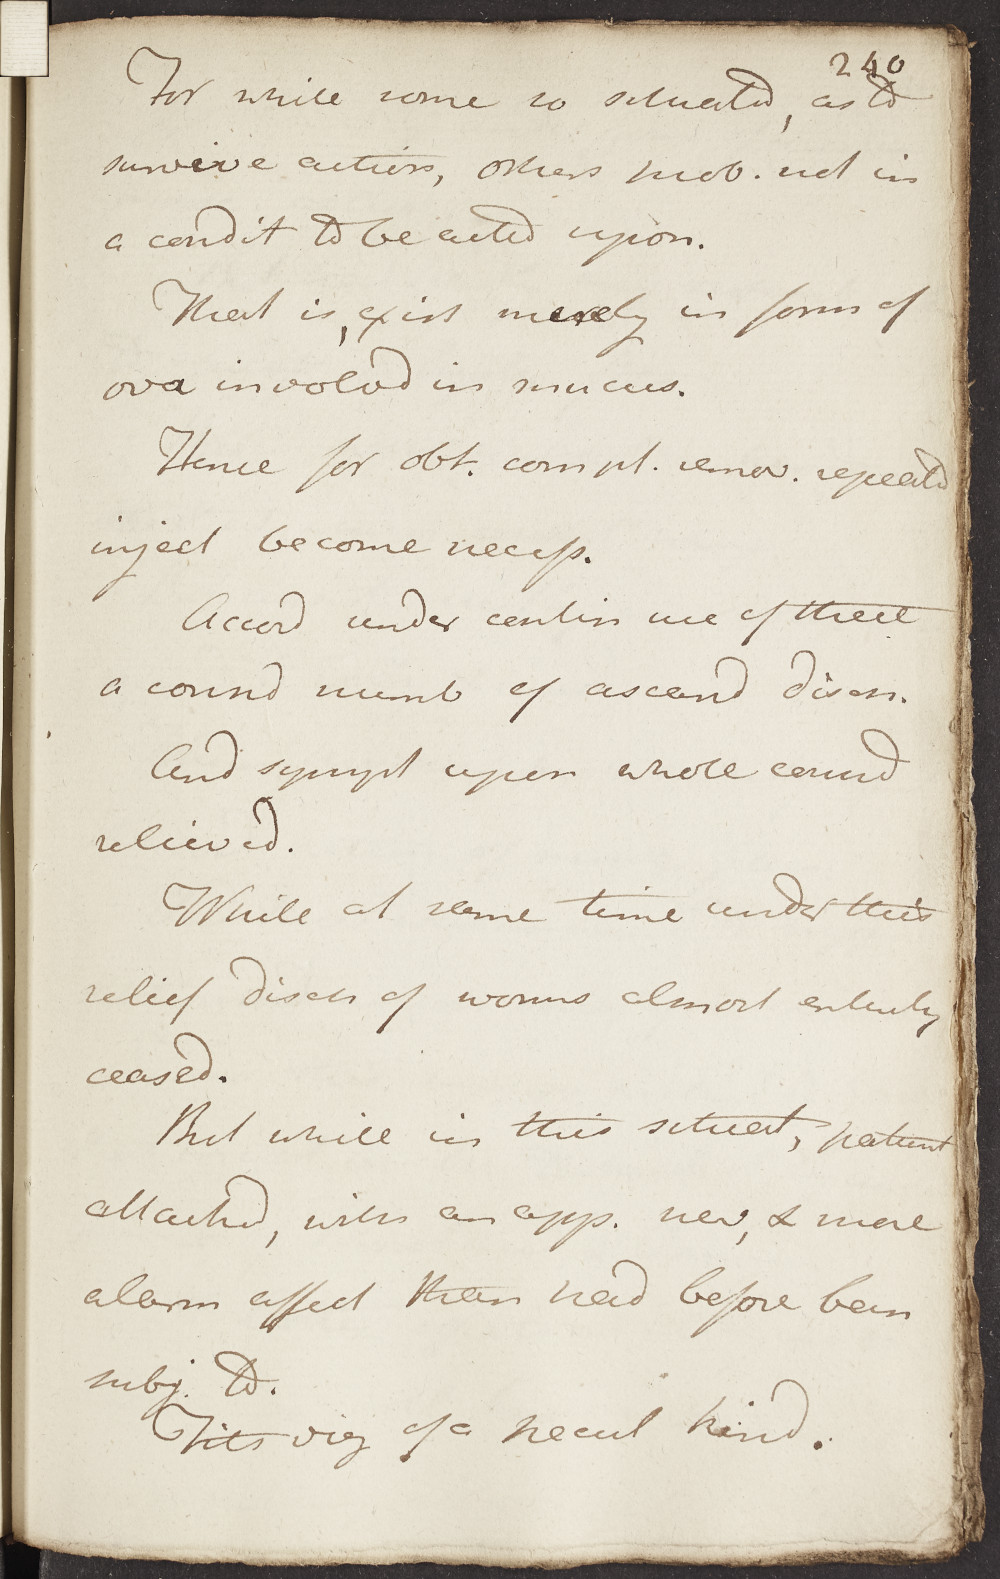 240
For while some so situated, as to
survive action, others prob. not in
a condit to be acted upon.
That is, exist merely in form of
ova involvd in mucus.
Hence for obt. compl. remov. repeatd
inject become necess.
Accord under contin use of these
a cound numb of ascarid disch.
And sympt upon whole cound
relieved.
While at same time under this
relief disch of worms almost entirely
ceased.
But while in this situat, patient
attackd, with an app. new, & more
alarm affect than had before been
subj. to.
Fits viz of a pecul kind.